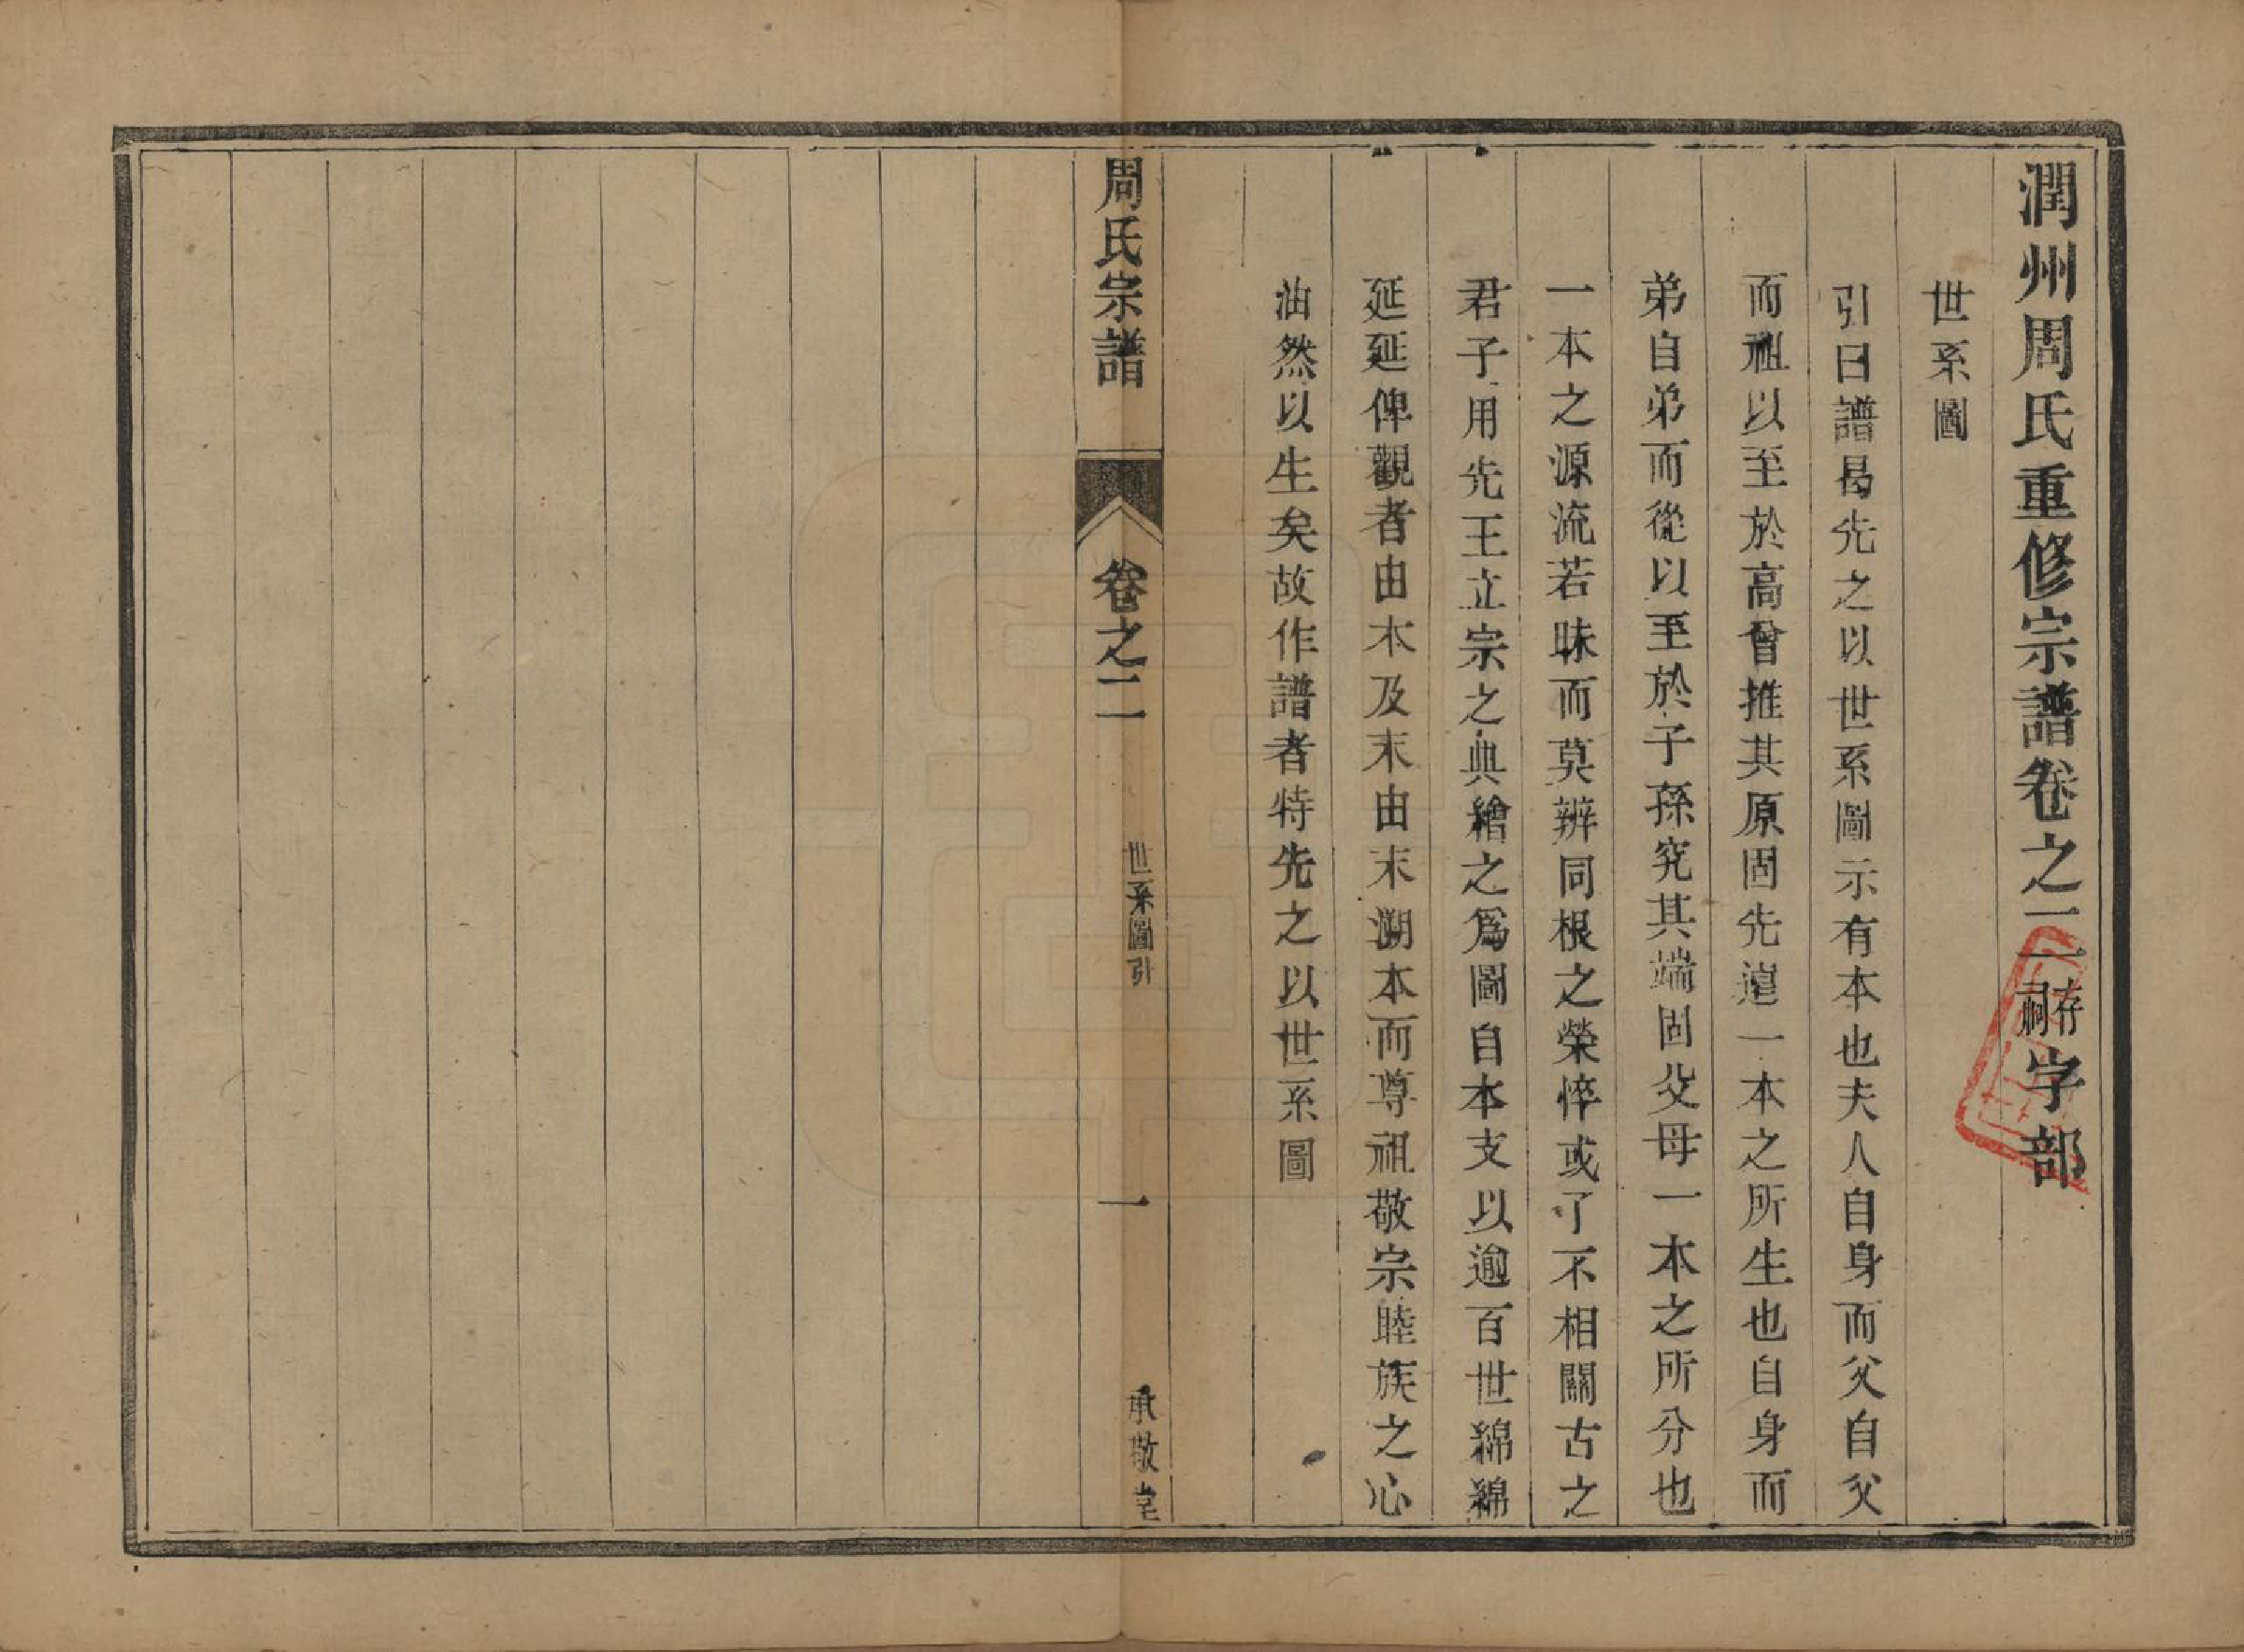 潤州周氏重修宗譜卷之二 存祠 字部
世系圖
引曰譜曷先之以世系圖示有本也夫人自身而父自父
而祖以至於高曾推其原固先邅一本之所生也自身而
弟自弟而從以至於子孫究其端固父母一本之所分也
一本之源流若昧而莫辨同根之榮悴或了不相關古之
君子用先王立宗之典繪之爲圖自本支以逾百世綿綿
延延俾觀者由本及末由末溯本而尊祖敬宗睦族之心
油然以生矣故作譜者特先之以世系圖
周氏宗譜 卷之二 世系圖引 一 承敬堂